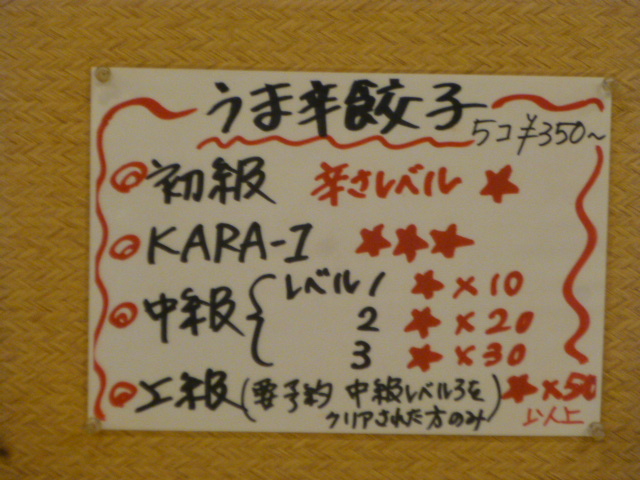 うま辛餃子 5コ¥350~
初級 辛さレベル ★
KARA-1 ★★★
中級 { レベル1 ★×10
2 ★×20
3 ★×30
上級 (要予約 中級レベル3を ★×50
クリアされた方のみ) 以上